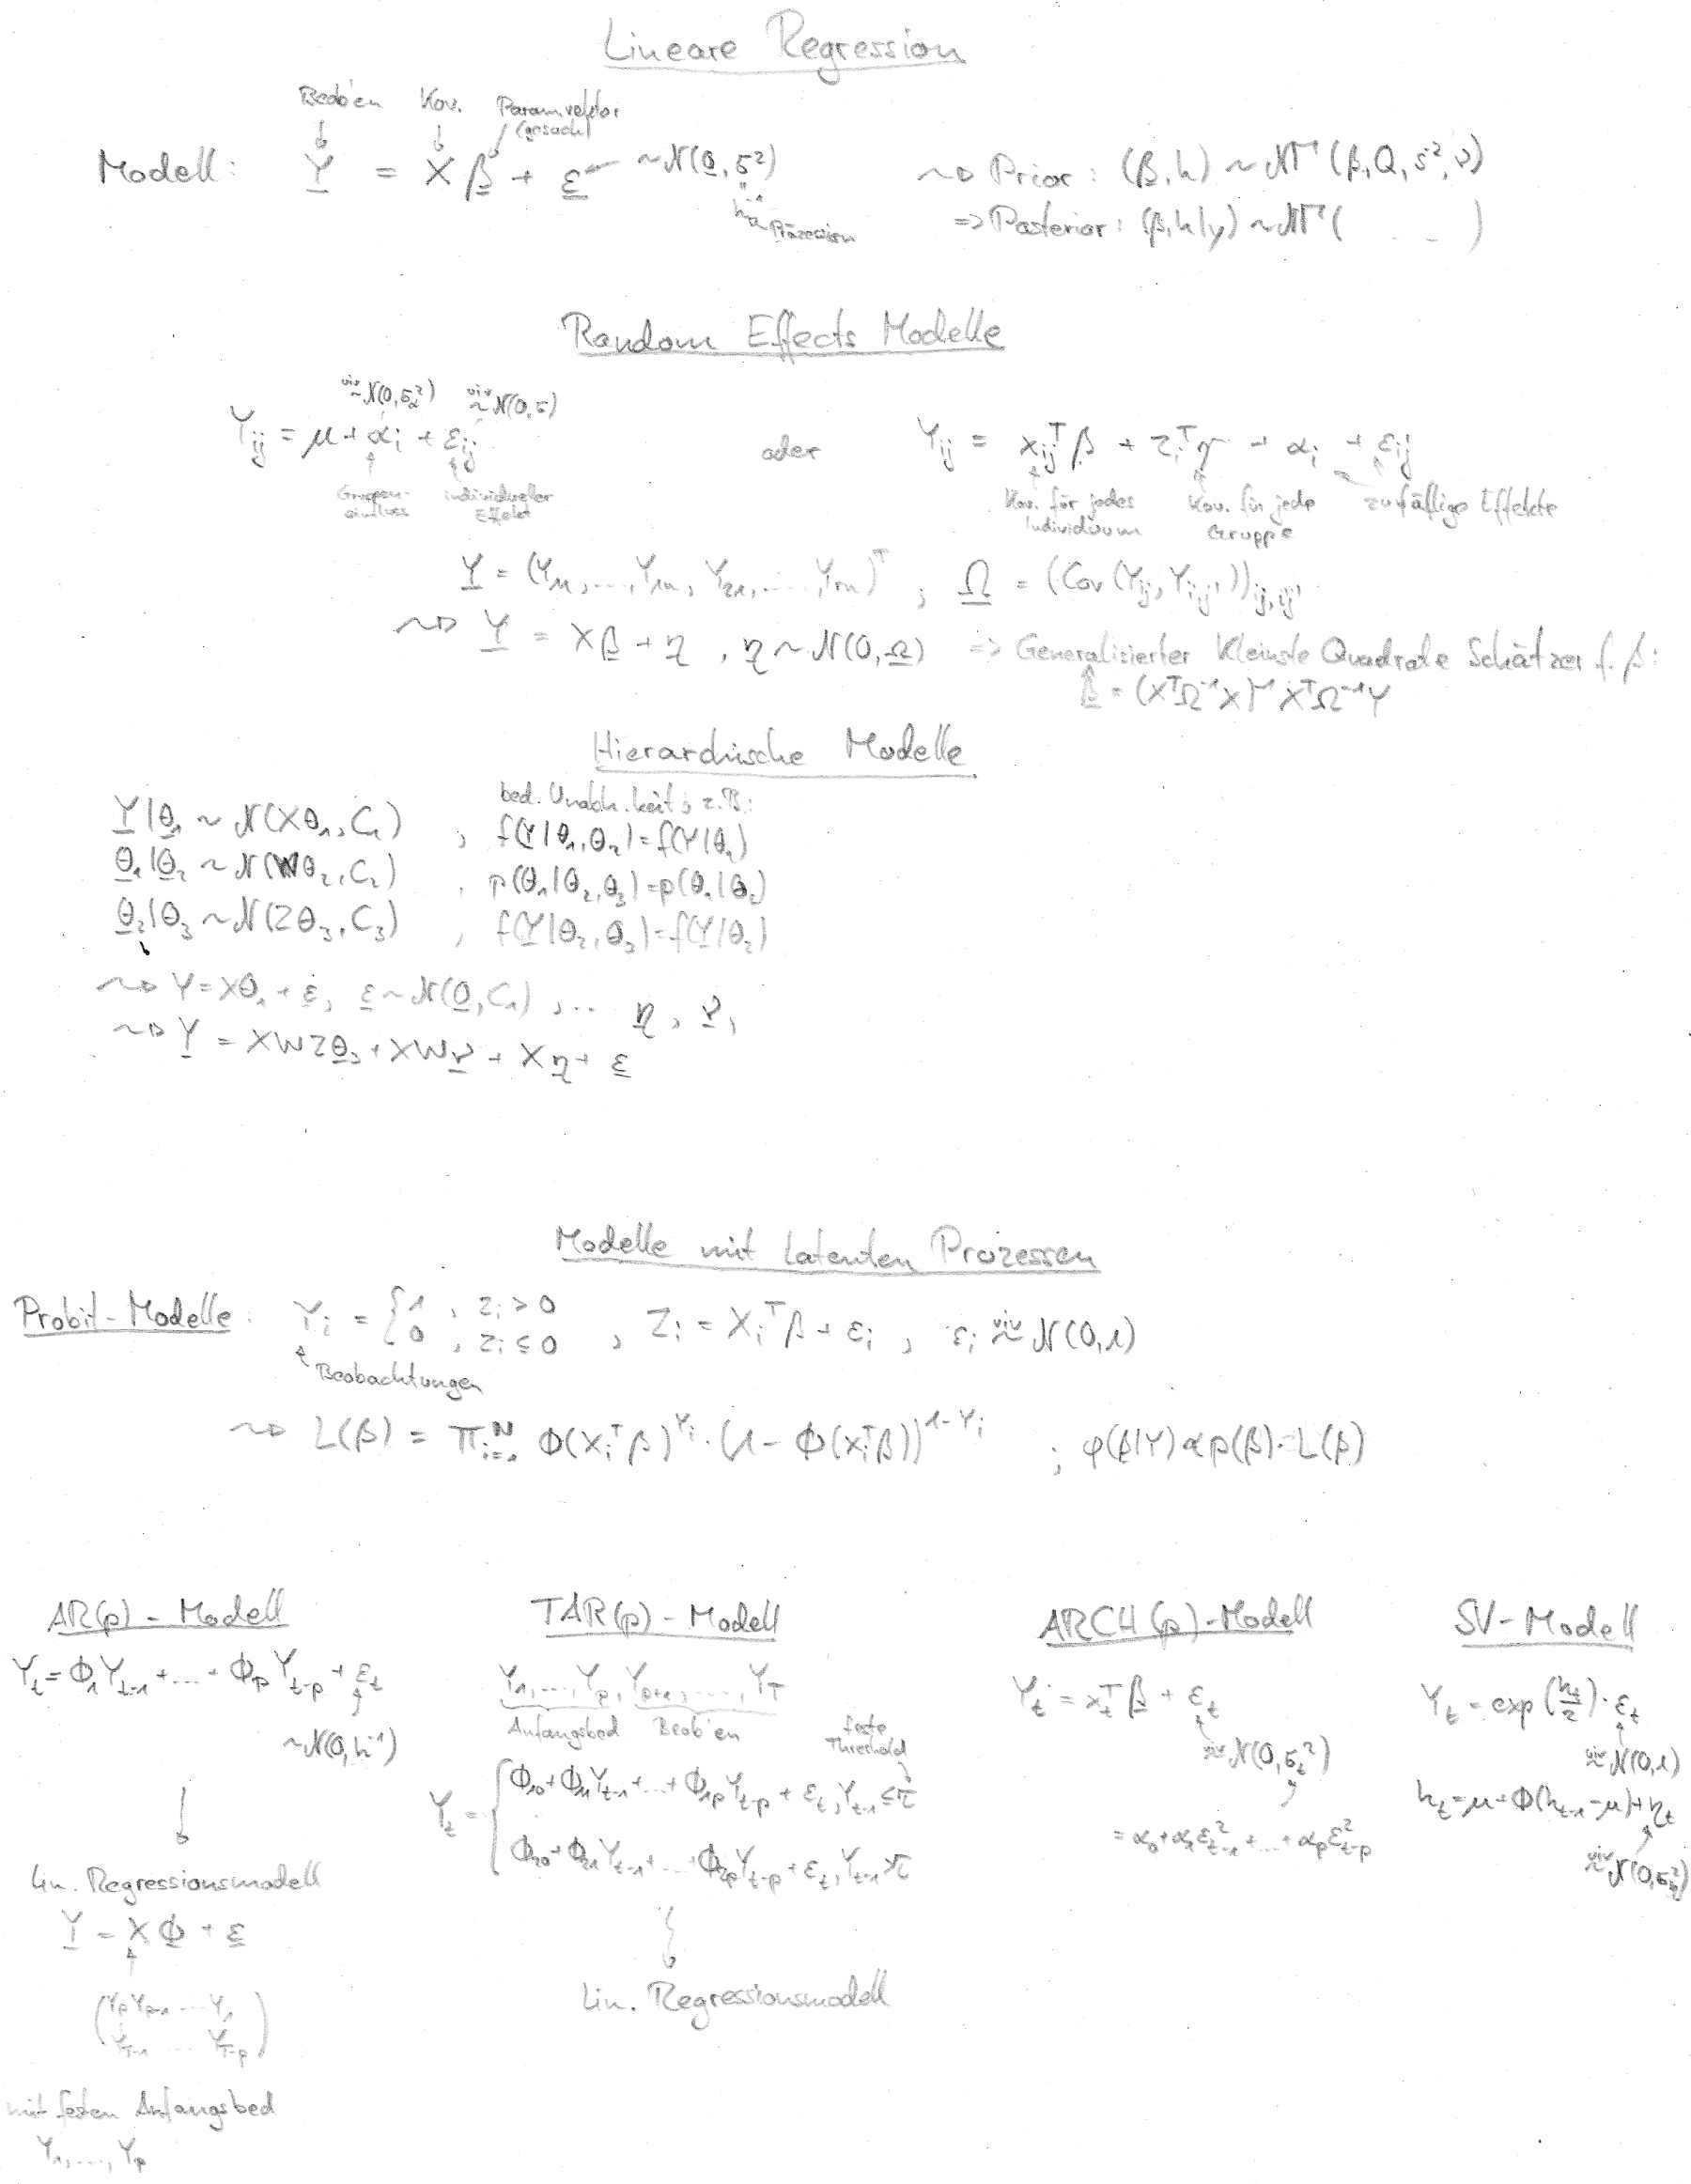 Lineare Regression
Beob'en Kov. Paramvektor
(gesucht)
Modell: Y = X β + ε ~ N(0, σ²) ~> Prior: (β, h) ~ NΓ(β, Q, s², ν)
h⁻¹ Präzession => Posterior: (β, h|y) ~ NΓ( .. )
Random Effects Modelle
uiv ~ N(0, σα²) uiv ~ N(0, σ)
Yij = μ + αi + εij oder Yij = xijᵀ β + ziᵀ η + αi + εij
Gruppen- individueller Kov. für jedes Kov. für jede zufällige Effekte
einfluss Effekt Individuum Gruppe
Y = (Y11, ..., Y1n, Y21, ..., Yrn)ᵀ ; Ω = (Cov(Yij, Yi'j'))ij,i'j'
~> Y = Xβ + η , η ~ N(0, Ω) => Generalisierter Kleinste Quadrate Schätzer f. β:
β̂ = (XᵀΩ⁻¹X)⁻¹ XᵀΩ⁻¹Y
Hierarchische Modelle
bed. Unabh.keit, z.B.:
Y|θ1 ~ N(Xθ1, C1) , f(Y|θ1, θ2) = f(Y|θ1)
θ1|θ2 ~ N(Wθ2, C2) , p(θ1|θ2, θ3) = p(θ1|θ2)
θ2|θ3 ~ N(Zθ3, C3) , f(Y|θ2, θ3) = f(Y|θ2)
~> Y = Xθ1 + ε, ε ~ N(0, C1) , ... η, ν,
~> Y = XWZθ3 + XWν + Xη + ε
Modelle mit latenten Prozessen
Probit-Modelle: Yi = {1 , zi > 0
0 , zi ≤ 0 , Zi = Xiᵀβ + εi , εi uiv ~ N(0,1)
Beobachtungen
~> L(β) = Π i=1 N Φ(Xiᵀβ)^Yi · (1 - Φ(xiᵀβ))^1-Yi ; φ(β|Y) ∝ p(β)·L(β)
AR(p)-Modell
Yt = Φ1Yt-1 + ... + ΦpYt-p + εt
~ N(0, h⁻¹)
Lin. Regressionsmodell
Y = XΦ + ε
(Yp Yp-1 ... Y1
YT-1 ... YT-p)
mit festen Anfangsbed
Y1, ..., Yp
TAR(p)-Modell
Y1, ..., Yp, Yp+1, ..., YT
Anfangsbed Beob'en feste
Threshold
Yt = { Φ10 + Φ11Yt-1 + ... + Φ1pYt-p + εt, Yt-1 ≤ τ
Φ20 + Φ21Yt-1 + ... + Φ2pYt-p + εt, Yt-1 > τ
Lin. Regressionsmodell
ARCH(p)-Modell
Yt = xtᵀ β + εt
uiv ~ N(0, σt²)
= α0 + α1ε²t-1 + ... + αpε²t-p
SV-Modell
Yt = exp(ht/2)·εt
uiv ~ N(0,1)
ht = μ + Φ(ht-1 - μ) + ηt
uiv ~ N(0, ση²)